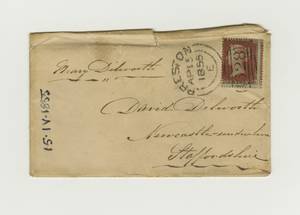 Mary Dilworth
PRESTON
AP 15
1855
E
David Dilworth
Newcastle-under-Lyme
Staffordshire
15.IV.1855